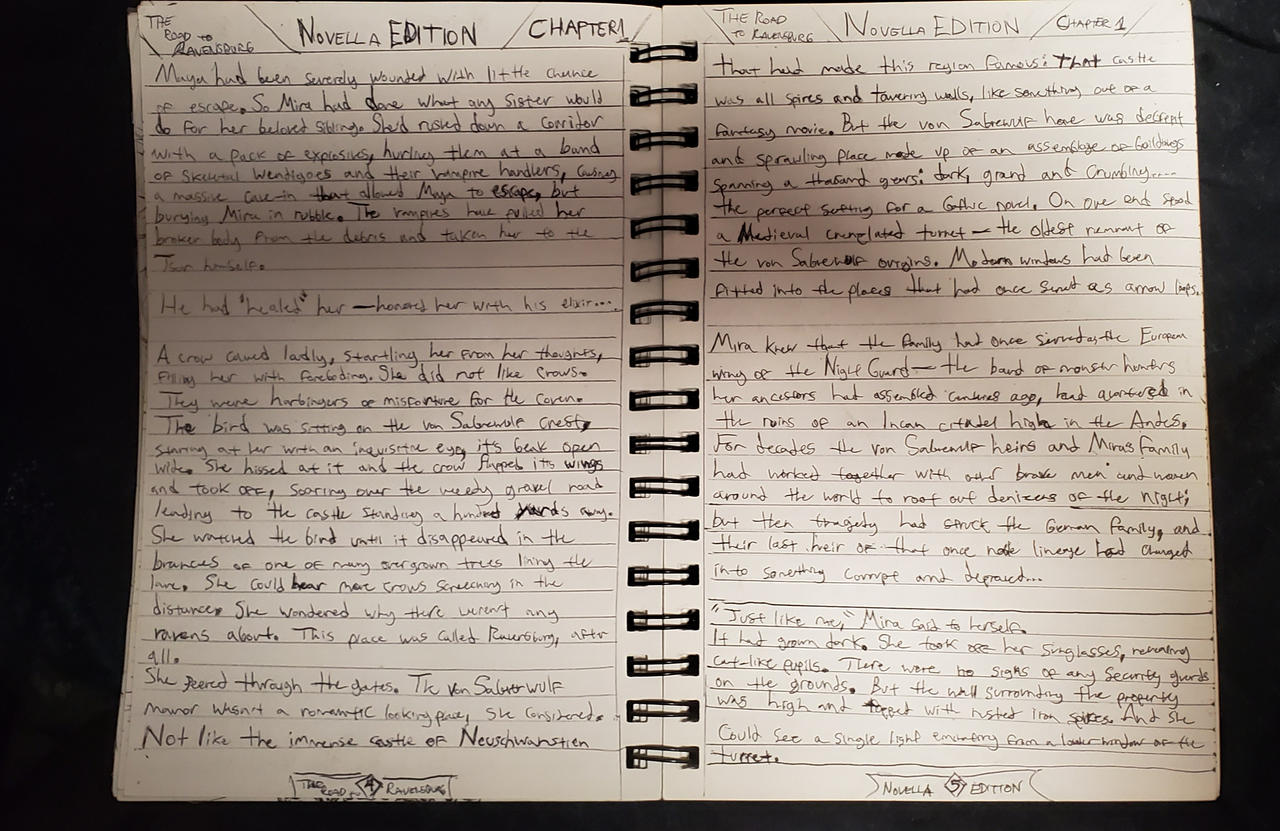 THE ROAD TO RAVENSBURG
NOVELLA EDITION
CHAPTER 1
Maya had been severely wounded with little chance
of escape. So Mira had done what any sister would
do for her beloved sibling. She'd rushed down a corridor
with a pack of explosives, hurling them at a band
of skeletal Wendigoes and their vampire handlers, causing
a massive cave-in that allowed Maya to escape, but
burying Mira in rubble. The vampires have pulled her
broken body from the debris and taken her to the
Tsar himself.
He had "healed" her — honored her with his elixir...
A crow cawed loudly, startling her from her thoughts,
filling her with foreboding. She did not like crows.
They were harbingers of misfortune for the Coven.
The bird was sitting on the von Sabrewulf crest,
staring at her with an inquisitive eye, it's beak open
wide. She hissed at it and the crow flapped it's wings
and took off, soaring over the weedy gravel road
leading to the castle standing a hundred yards away.
She watched the bird until it disappeared in the
branches of one of many overgrown trees lining the
lane. She could hear more crows screeching in the
distance. She wondered why there weren't any
ravens about. This place was called Ravensburg, after
all.
She peered through the gates. The von Sabrewulf
manor wasn't a romantic looking place, she considered.
Not like the immense castle of Neuschwanstien
THE ROAD TO 4 RAVENSBURG
THE ROAD TO RAVENSBURG
NOVELLA EDITION
CHAPTER 1
that had made this region famous: That castle
was all spires and towering walls, like something out of a
fantasy movie. But the von Sabrewulf home was decrepit
and sprawling place made up of an assemblage of buildings
spanning a thousand years: dark, grand and crumbling....
the perfect setting for a Gothic novel. On one end stood
a Medieval crenelated turret — the oldest remnant of
the von Sabrewolf origins. Modern windows had been
fitted into the places that had once served as arrow loops.
Mira knew that the family had once served as the European
wing of the Night Guard — the band of monster hunters
her ancestors had assembled centuries ago, head quartered in
the ruins of an Incan citadel high in the Andes.
For decades the von Sabrewulf heirs and Mira's family
had worked together with other brave men and women
around the world to root out denizens of the night;
but then tragedy had struck the German family, and
their last heir of that once noble lineage had changed
into something corrupt and depraved...
"Just like me," Mira said to herself.
It had grown dark. She took off her sunglasses, revealing
cat-like pupils. There were no signs of any security guards
on the grounds. But the wall surrounding the property
was high and topped with rusted iron spikes. And she
Could see a single light emanating from a lower window of the
turret.
NOVELLA 5 EDITION